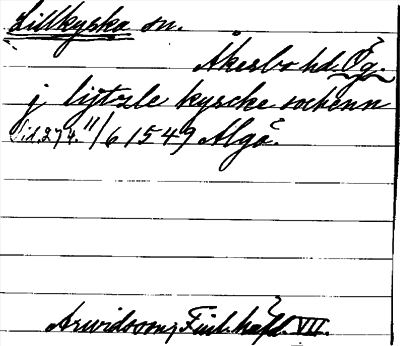 Lillkyska sn.
Åkesbo hd. Ög.
j lijtzle kyscke sockenn
Sid. 274. 11/6 1549 Algå.
Arwidsson, Finl. häfd. VII.